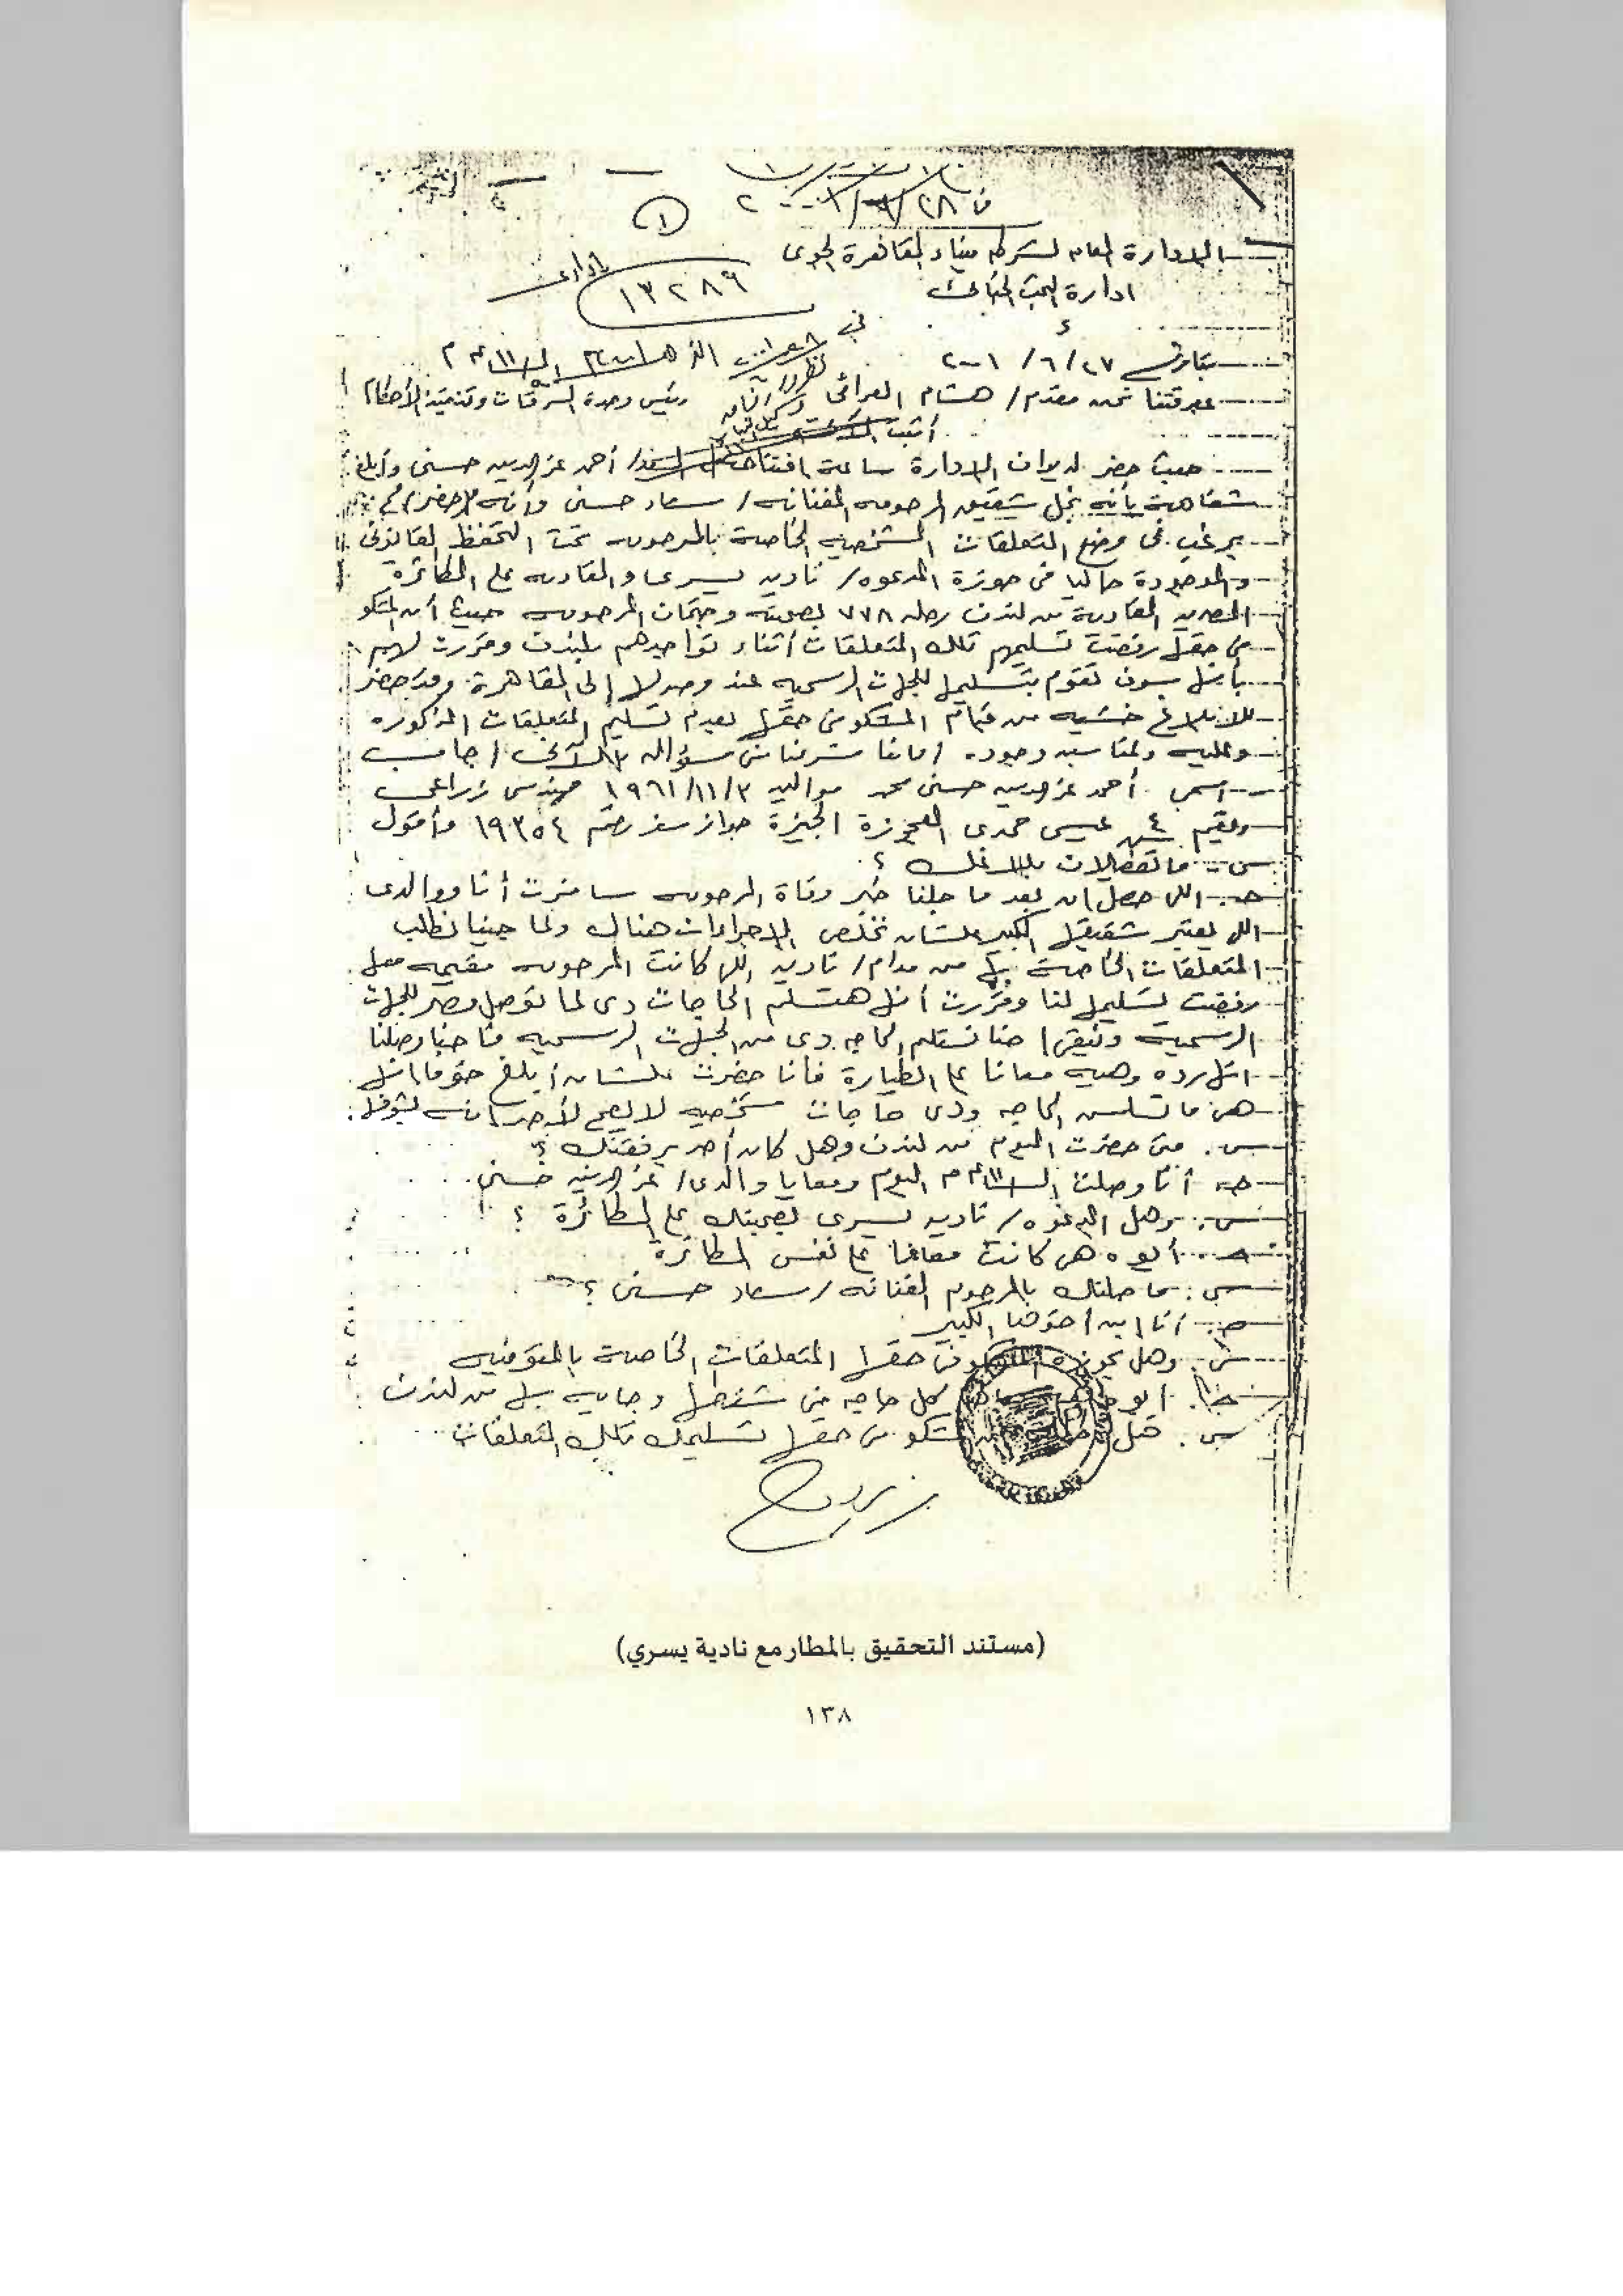 ٢٠٠١/٦/٢٨
(١)
الادارة العامه لشرطه ميناء القاهرة الجوى
ادارة البحث الجنائى
١٣٢٨٩ ادارى
بتاريخ ٢٧ /٦ /٢٠٠١ الساعه ١١ م
بمعرفتنا نحن مقدم/ هشام العراقى رئيس وحدة السرقات وتنفيذ الأحكام
أثبت
حيث حضر لديوان الادارة ساعة افتتاح المحضر السيد/ أحمد عز الدين حسنى وأبلغ
شفاهة بأنه نجل شقيق المرحومه الفنانه/ سعاد حسنى وأنه
يرغب فى وضع المتعلقات الشخصيه الخاصة بالمرحومه تحت التحفظ القانونى
والموجودة حاليا فى حوزة المدعوه/ ناديه يسرى والقادمه على الطائرة
المصريه القادمة من لندن رحله ٧٧٨ بصحبته وجثمان المرحومه حيث أن المشكو
فى حقها رفضت تسليمهم تلك المتعلقات أثناء تواجدهم بلندن وقررت لهم
بأنها سوف تقوم بتسليمها للجهات الرسميه عند وصولها إلى القاهرة وقد حضر
للابلاغ خشيه من قيام المشكو فى حقها بعدم تسليم المتعلقات المذكوره
وعليه ولمناسبه وجوده أمامنا شرعنا فى سؤاله بالآتى أجاب
اسمى أحمد عز الدين حسنى محمد مواليد ١٩٦١/١١/٣ مهندس زراعى
ومقيم ٤ ش عيسى حمدى العجوزة الجيزة جواز سفر رقم ١٩٣٥٤ وأقول
س : ما تفصيلات بلاغك ؟
جـ : اللى حصل ان بعد ما جلنا خبر وفاة المرحومه سافرت أنا ووالدى
اللى يعتبر شقيقها الكبير علشان نخلص الاجراءات هناك ولما جينا نطلب
المتعلقات الخاصة بها من مدام/ ناديه اللى كانت المرحومه مقيمه معها
رفضت تسليمها لنا وقررت أنها هتسلم الحاجات دى لما توصل مصر للجهات
الرسميه ونبقى احنا نستلم الحاجه دى من الجهات الرسميه فاحنا وصلنا
النهارده وهيه معانا على الطيارة فأنا حضرت علشان أبلغ خوفا انها
هى ما تسلمش الحاجه ودى حاجات شخصيه لا يصح لأحد انه يشوفها
س : متى حضرت اليوم من لندن وهل كان أحد برفقتك ؟
جـ : أنا وصلت الساعه ١١ م اليوم ومعايا والدى/ عز الدين حسنى
س : وهل المدعوه/ ناديه يسرى بصحبتك على الطائرة ؟
جـ : أيوه هى كانت معانا على نفس الطائرة
س : ما صلتك بالمرحوم الفنانه/ سعاد حسنى ؟
جـ : أنا ابن أخوها الكبير
س : وهل بحوزة المشكو فى حقها المتعلقات الخاصة بالمتوفيه
جـ : ايوه كل حاجه فى شنطها وجايه بها من لندن
س : هل المشكو فى حقها تسليمك تلك المتعلقات
(مستند التحقيق بالمطار مع نادية يسري)
١٣٨